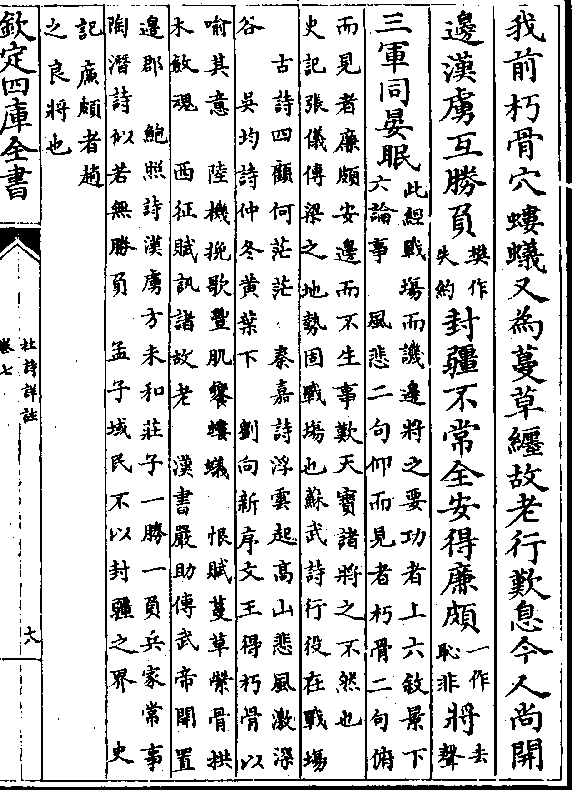 我前朽骨穴螻蟻又為蔓草纒故老行歎息今人尚開
邊漢虜互勝負樊作失約封疆不常全安得廉頗一作恥非將去聲
三軍同晏眠此經戰塲而譏邊將之要功者上六敘景下
六論事 風悲二句仰而見者朽骨二句俯
而見者廉頗安邊而不生事歎天寶諸將之不然也
史記張儀傳梁之地勢固戰塲也蘇武詩行役在戰塲
古詩四顧何茫茫 秦嘉詩浮雲起高山悲風激深
谷 吳均詩仲冬黄葉下 劉向新序文王得朽骨以
喻其意 陸機挽歌豐肌饗螻蟻 恨賦蔓草縈骨拱
木斂魂 西征賦訊諸故老 漢書嚴助傳武帝開置
邊郡 鮑照詩漢虜方未和莊子一勝一負兵家常事
陶潛詩似若無勝負 孟子域民不以封疆之界 史
記廉頗者趙
之良將也
欽定四庫全書
杜詩詳註
卷七